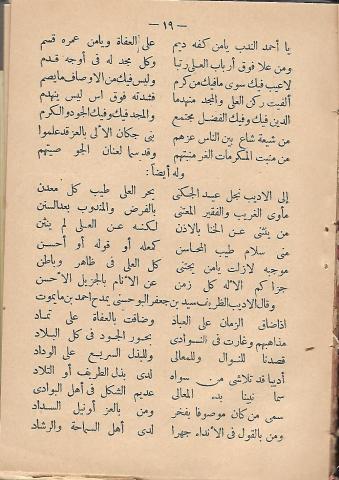 — ١٩ —
يا أحمد الندب يامن كفه ديم على العفاة ويامن عمره قسم
ومن علا فوق أرباب العلى رتبا وكل مجد له فى أوجه قدم
لاعيب فيك سوى مافيك من كرم وليس فيك من الاوصاف مايصم
ألفيت ركن العلى والمجد منهدما فشدته فوق اس ليس ينهدم
الدين فيك وفيك الفضل مجتمع والمجد فيك وفيك الجود والكرم
من شيعة شاع بين الناس عزهم بنى جكان الألى بالعز قد علموا
من منبت المكرمات الغر منبتهم وقد سما لعنان الجو صيتهم
وله أيضاً :
إلى الاديب نجل عبد الجكنى بحر العلى طيب كل معدن
مأوى الغريب والفقير المعتنى بالفرض والمندوب بعد السنن
من ينثنى عن الخنا بالاذن لكنه عن العلى لم ينثن
منى سلام طيب المحاسن كمعله أو قوله أو أحسن
موجبه لازلت يامن يجتنى كل العلى فى ظاهر وباطن
جزاكم الاله كل زمن عن الأنام بالجزيل الأحسن
وقال الاديب الظريف سيد بن جعفر البوحسنى يمدح احمد بن مايموت
اذاضاق الزمان على العباد وضاقت بالعفاة على تماد
مذاهبهم وغارت فى النوادى بحور الجود فى كل البلاد
قصدنا للنوال وللمعالى وللبذل السريع على الوداد
أديبا قد تلاشى من سواه لدى بذل الطريف أو التلاد
سما نبينا بدء المعالى عديم الشكل فى أهل البوادى
سمى من كان موصوفا بفخر ومن بالعز أو نيل السداد
ومن بالقول فى الأنداء جهرا لدى أهل السماحة والرشاد